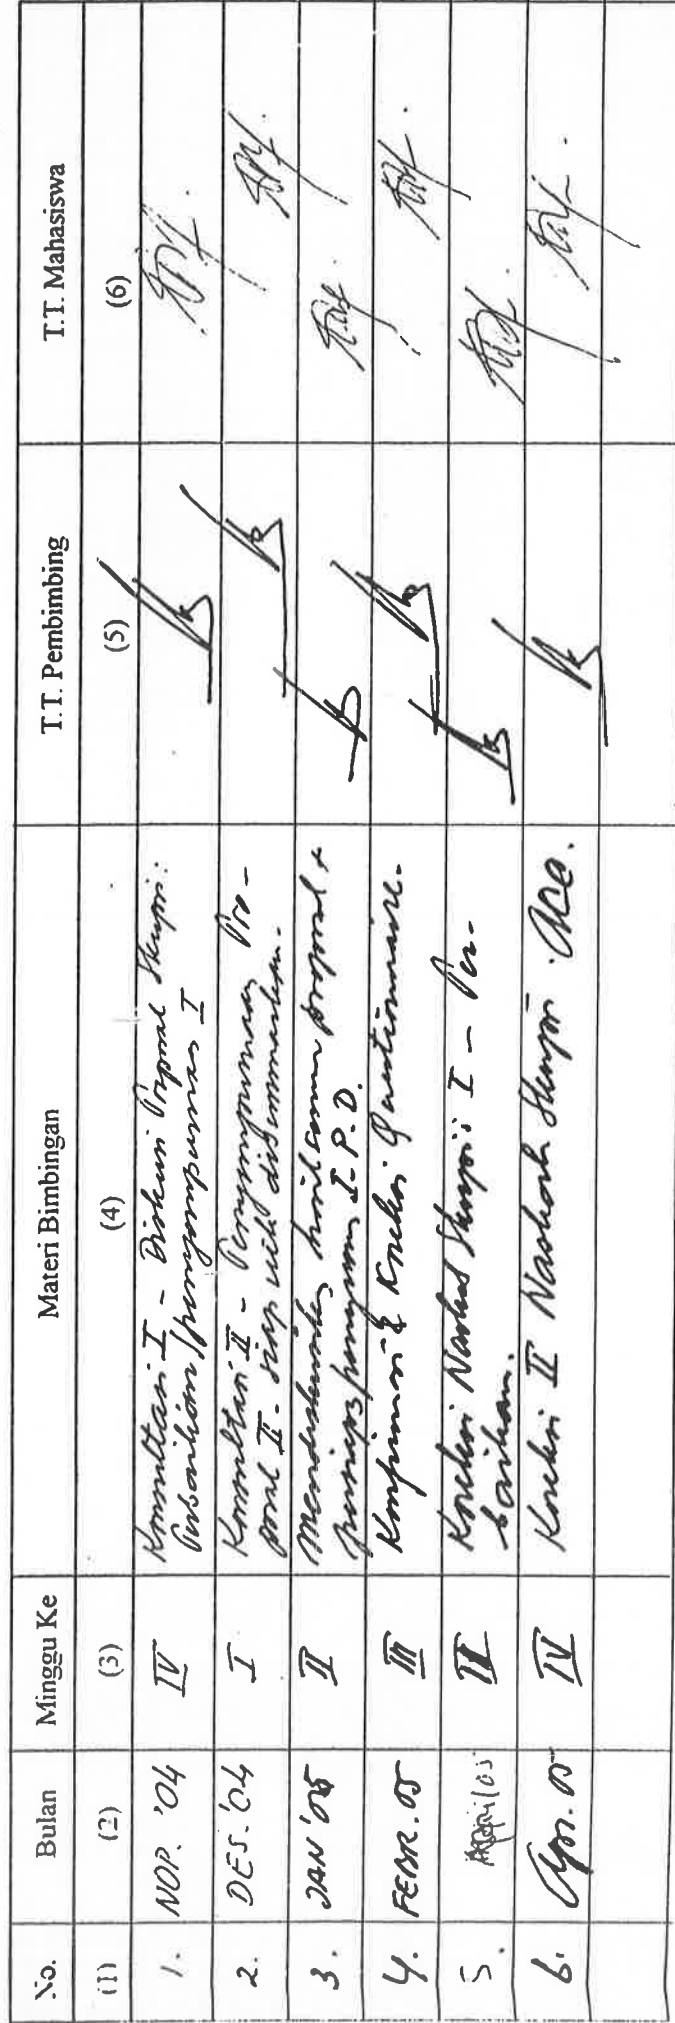 No. Bulan Minggu Ke Materi Bimbingan T.T. Pembimbing T.T. Mahasiswa
(1) (2) (3) (4) (5) (6)
1. NOP. '04 IV Konsultasi I - Diskusi Proposal Skripsi:
Perbaikan/penyempurnaan I
2. DES. '04 I Konsultasi II - Penyempurnaan Pro-
posal II - siap utk diseminarkan.
3. JAN '05 II Mendiskusikan hasil seminar proposal +
persiapan I.P.D.
4. FEBR. 05 III & Koreksi Questionnaire.
5. April 05 II Koreksi Naskah Skripsi I - Per-
baikan.
6. Apr. 05 IV Koreksi II Naskah Skripsi. Acc.